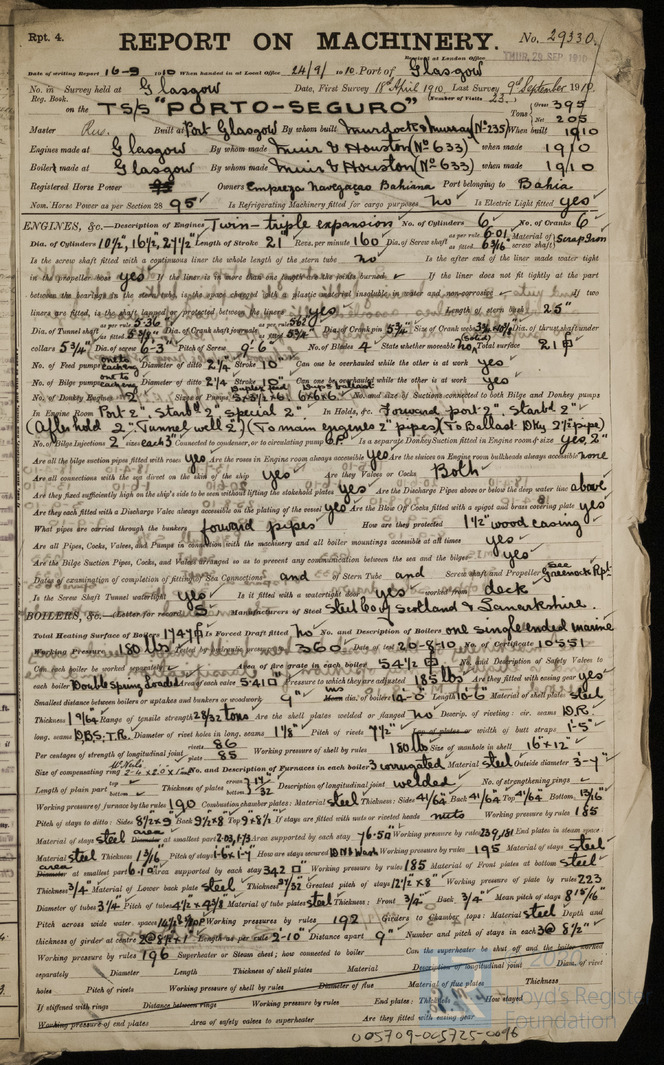 Rpt. 4.
REPORT ON MACHINERY.
No. 29330.
Received at London Office THUR. 29 SEP 1910
Date of writing Report 16-9 1910 When handed in at Local Office 24/9/ 1910 Port of Glasgow
No. in Survey held at Glasgow Date, First Survey 18th April 1910 Last Survey 9th September 1910
Reg. Book. (Number of Visits 23.)
on the TS/S "PORTO-SEGURO" Tons Gross 395 Net 205
Master Built at Port Glasgow By whom built Murdoch & Murray (No 235) When built 1910
Engines made at Glasgow By whom made Muir & Houston (No 633) when made 1910
Boilers made at Glasgow By whom made Muir & Houston (No 633) when made 1910
Registered Horse Power Owners Empreza Navegaçao Bahiana Port belonging to Bahia
Nom. Horse Power as per Section 28 95 Is Refrigerating Machinery fitted for cargo purposes no Is Electric Light fitted yes
ENGINES, &c.—Description of Engines Twin - triple expansion No. of Cylinders 6 No. of Cranks 6
Dia. of Cylinders 10½", 16½, 27½" Length of Stroke 21" Revs. per minute 160 Dia. of Screw shaft as per rule 6.01 as fitted 6 3/16 Material of screw shaft Scrap Iron
Is the screw shaft fitted with a continuous liner the whole length of the stern tube no Is the after end of the liner made water tight
in the propeller boss yes If the liner is in more than one length are the joints burned If the liner does not fit tightly at the part
between the bearings in the stern tube, is the space charged with a plastic material insoluble in water and non-corrosive If two
liners are fitted, is the shaft lapped or protected between the liners yes Length of stern bush 25"
Dia. of Tunnel shaft as per rule 5.36 as fitted 5¾" Dia. of Crank shaft journals as per rule 5.62 as fitted 5¾ Dia. of Crank pin 5¾" Size of Crank webs Dia. of thrust shaft under
collars 5¾" Dia. of screw 6-3" Pitch of Screw 9-6" No. of Blades 4 State whether moveable no (solid) Total surface 21
No. of Feed pumps one to each eng Diameter of ditto 2¼ Stroke 10" Can one be overhauled while the other is at work yes
No. of Bilge pumps one to each eng Diameter of ditto 2¼ Stroke 10" Can one be overhauled while the other is at work yes
No. of Donkey Engines 2 Sizes of Pumps No. and size of Suctions connected to both Bilge and Donkey pumps
In Engine Room Port 2", Starbd 2" special 2". In Holds, &c. Forward port 2", Starbd 2"
(After hold 2" Tunnel well 2") (To main engines 2" pipes) (To Ballast Dky 2½" pipe)
No. of Bilge Injections 2 sizes each 3" Connected to condenser, or to circulating pump CP Is a separate Donkey Suction fitted in Engine room & size yes, 2"
Are all the bilge suction pipes fitted with roses yes Are the roses in Engine room always accessible yes Are the sluices on Engine room bulkheads always accessible none
Are all connections with the sea direct on the skin of the ship yes Are they Valves or Cocks Both
Are they fixed sufficiently high on the ship's side to be seen without lifting the stokehold plates yes Are the Discharge Pipes above or below the deep water line above
Are they each fitted with a Discharge Valve always accessible on the plating of the vessel yes Are the Blow Off Cocks fitted with a spigot and brass covering plate yes
What pipes are carried through the bunkers forward pipes How are they protected 1½" wood casing
Are all Pipes, Cocks, Valves, and Pumps in connection with the machinery and all boiler mountings accessible at all times yes
Are the Bilge Suction Pipes, Cocks, and Valves arranged so as to prevent any communication between the sea and the bilges yes
Dates of examination of completion of fitting of Sea Connections and of Stern Tube and Screw shaft and Propeller See Greenock Rpt.
Is the Screw Shaft Tunnel watertight yes Is it fitted with a watertight door yes worked from deck
BOILERS, &c.—(Letter for record S) Manufacturers of Steel Steel Coy of Scotland & Lanarkshire.
Total Heating Surface of Boilers 1747 Is Forced Draft fitted no No. and Description of Boilers one single ended marine
Working Pressure 180 lbs Tested by hydraulic pressure to 360 Date of test 20-8-10 No. of Certificate 10551
Can each boiler be worked separately Area of fire grate in each boiler 54½ No. and Description of Safety Valves to
each boiler Double Spring Loaded Area of each valve 5.41 Pressure to which they are adjusted 185 lbs Are they fitted with easing gear yes
Smallest distance between boilers or uptakes and bunkers or woodwork 9" ins dia. of boilers 14-0 Length 10-6" Material of shell plates steel
Thickness 1 9/64 Range of tensile strength 28/32 tons Are the shell plates welded or flanged no Descrip. of riveting: cir. seams D.R.
long. seams D.B.S.T.R. Diameter of rivet holes in long. seams 1 1/8" Pitch of rivets 7½" Lap of plates or width of butt straps 1'-5"
Per centages of strength of longitudinal joint rivets 86 plate 85 Working pressure of shell by rules 180 lbs Size of manhole in shell 16"×12"
Size of compensating ring No. and Description of Furnaces in each boiler 3 corrugated Material steel Outside diameter 3-7"
Length of plain part top bottom Thickness of plates crown bottom 17/32 Description of longitudinal joint welded No. of strengthening rings
Working pressure of furnace by the rules 190 Combustion chamber plates: Material steel Thickness: Sides 41/64 Back 41/64 Top 41/64 Bottom 13/16"
Pitch of stays to ditto: Sides 8½×9 Back 9½×8 Top 9×8½ If stays are fitted with nuts or riveted heads nuts Working pressure by rules 185
Material of stays steel area at smallest part 2.03, 1.73 Area supported by each stay 76.5 Working pressure by rules 239, 181 End plates in steam space
Material steel Thickness 1 3/16 Pitch of stays 1-6×1-7" How are stays secured D.N & Wash Working pressure by rules 195 Material of stays steel
area at smallest part 6.19 Area supported by each stay 342 Working pressure by rules 185 Material of Front plates at bottom steel
Thickness ¾ Material of Lower back plate steel Thickness 27/32 Greatest pitch of stays 12½"×8" Working pressure of plate by rules 223
Diameter of tubes 3¼" Pitch of tubes 4½ × 4 3/8 Material of tube plates steel Thickness: Front ¾" Back ¾" Mean pitch of stays 8 15/16"
Pitch across wide water spaces Working pressures by rules 192 Girders to Chamber tops: Material steel Depth and
thickness of girder at centre Length as per rule 2'-10" Distance apart 9" Number and pitch of stays in each 3@ 8½"
Working pressure by rules 196 Superheater or Steam chest; how connected to boiler Can the superheater be shut off and the boiler worked
separately Diameter Length Thickness of shell plates Material Description of longitudinal joint Diam. of rivet
holes Pitch of rivets Working pressure of shell by rules Diameter of flue Material of flue plates Thickness
If stiffened with rings Distance between rings Working pressure by rules End plates: Thickness How stayed
Working pressure of end plates Area of safety valves to superheater Are they fitted with easing gear
© 2020
Lloyd's Register
Foundation
005709-005725-0096